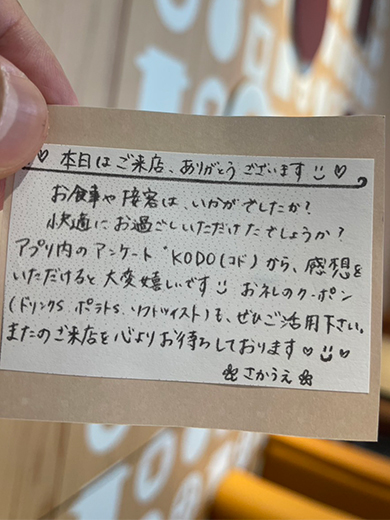 ♡ 本日はご来店、ありがとうございます ☺ ♡
お食事や接客は、いかがでしたか？
快適にお過ごしいただけたでしょうか？
アプリ内のアンケート"KODO(コド)から、感想を
いただけると大変嬉しいです☺ お礼のクーポン
(ドリンクS、ポテトS、ソフトツイスト)も、ぜひご活用下さい。
またのご来店を心よりお待ちしております♡☺♡
❀さかうえ❀